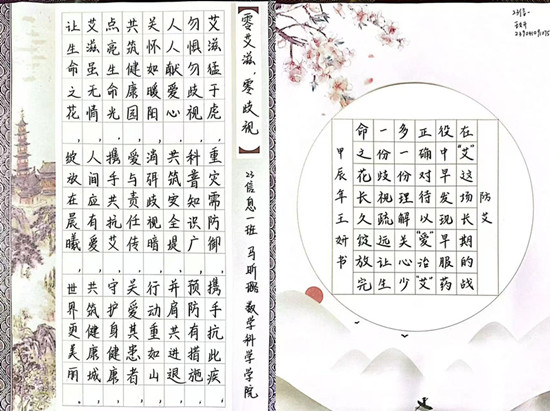 【零艾滋，零歧视】
23信息一班 马昕璐 数学科学学院
艾滋猛于虎，重灾需防御，携手抗此疾，
勿惧勿歧视，科普知识广，预防有措施，
人人献爱心，共筑安全堤，并肩共进退，
关怀如暖阳，消弭歧视暗，行动重如山，
共筑健康园，爱与责任传，关爱其患者，
点亮生命光，携手共抗艾，守护身健康，
艾滋虽无情，人间应有爱，共筑健康城，
让生命之花，绽放在晨曦，世界更美丽。
防艾
在“艾”这场长期的战
役中早发现早服药
正确对待以“爱”治“艾”
多一份理解关心少
一份歧视疏远让生
命之花长久绽放完
甲辰年王妍书